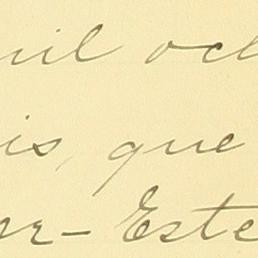 mil och
is, que
or-Este